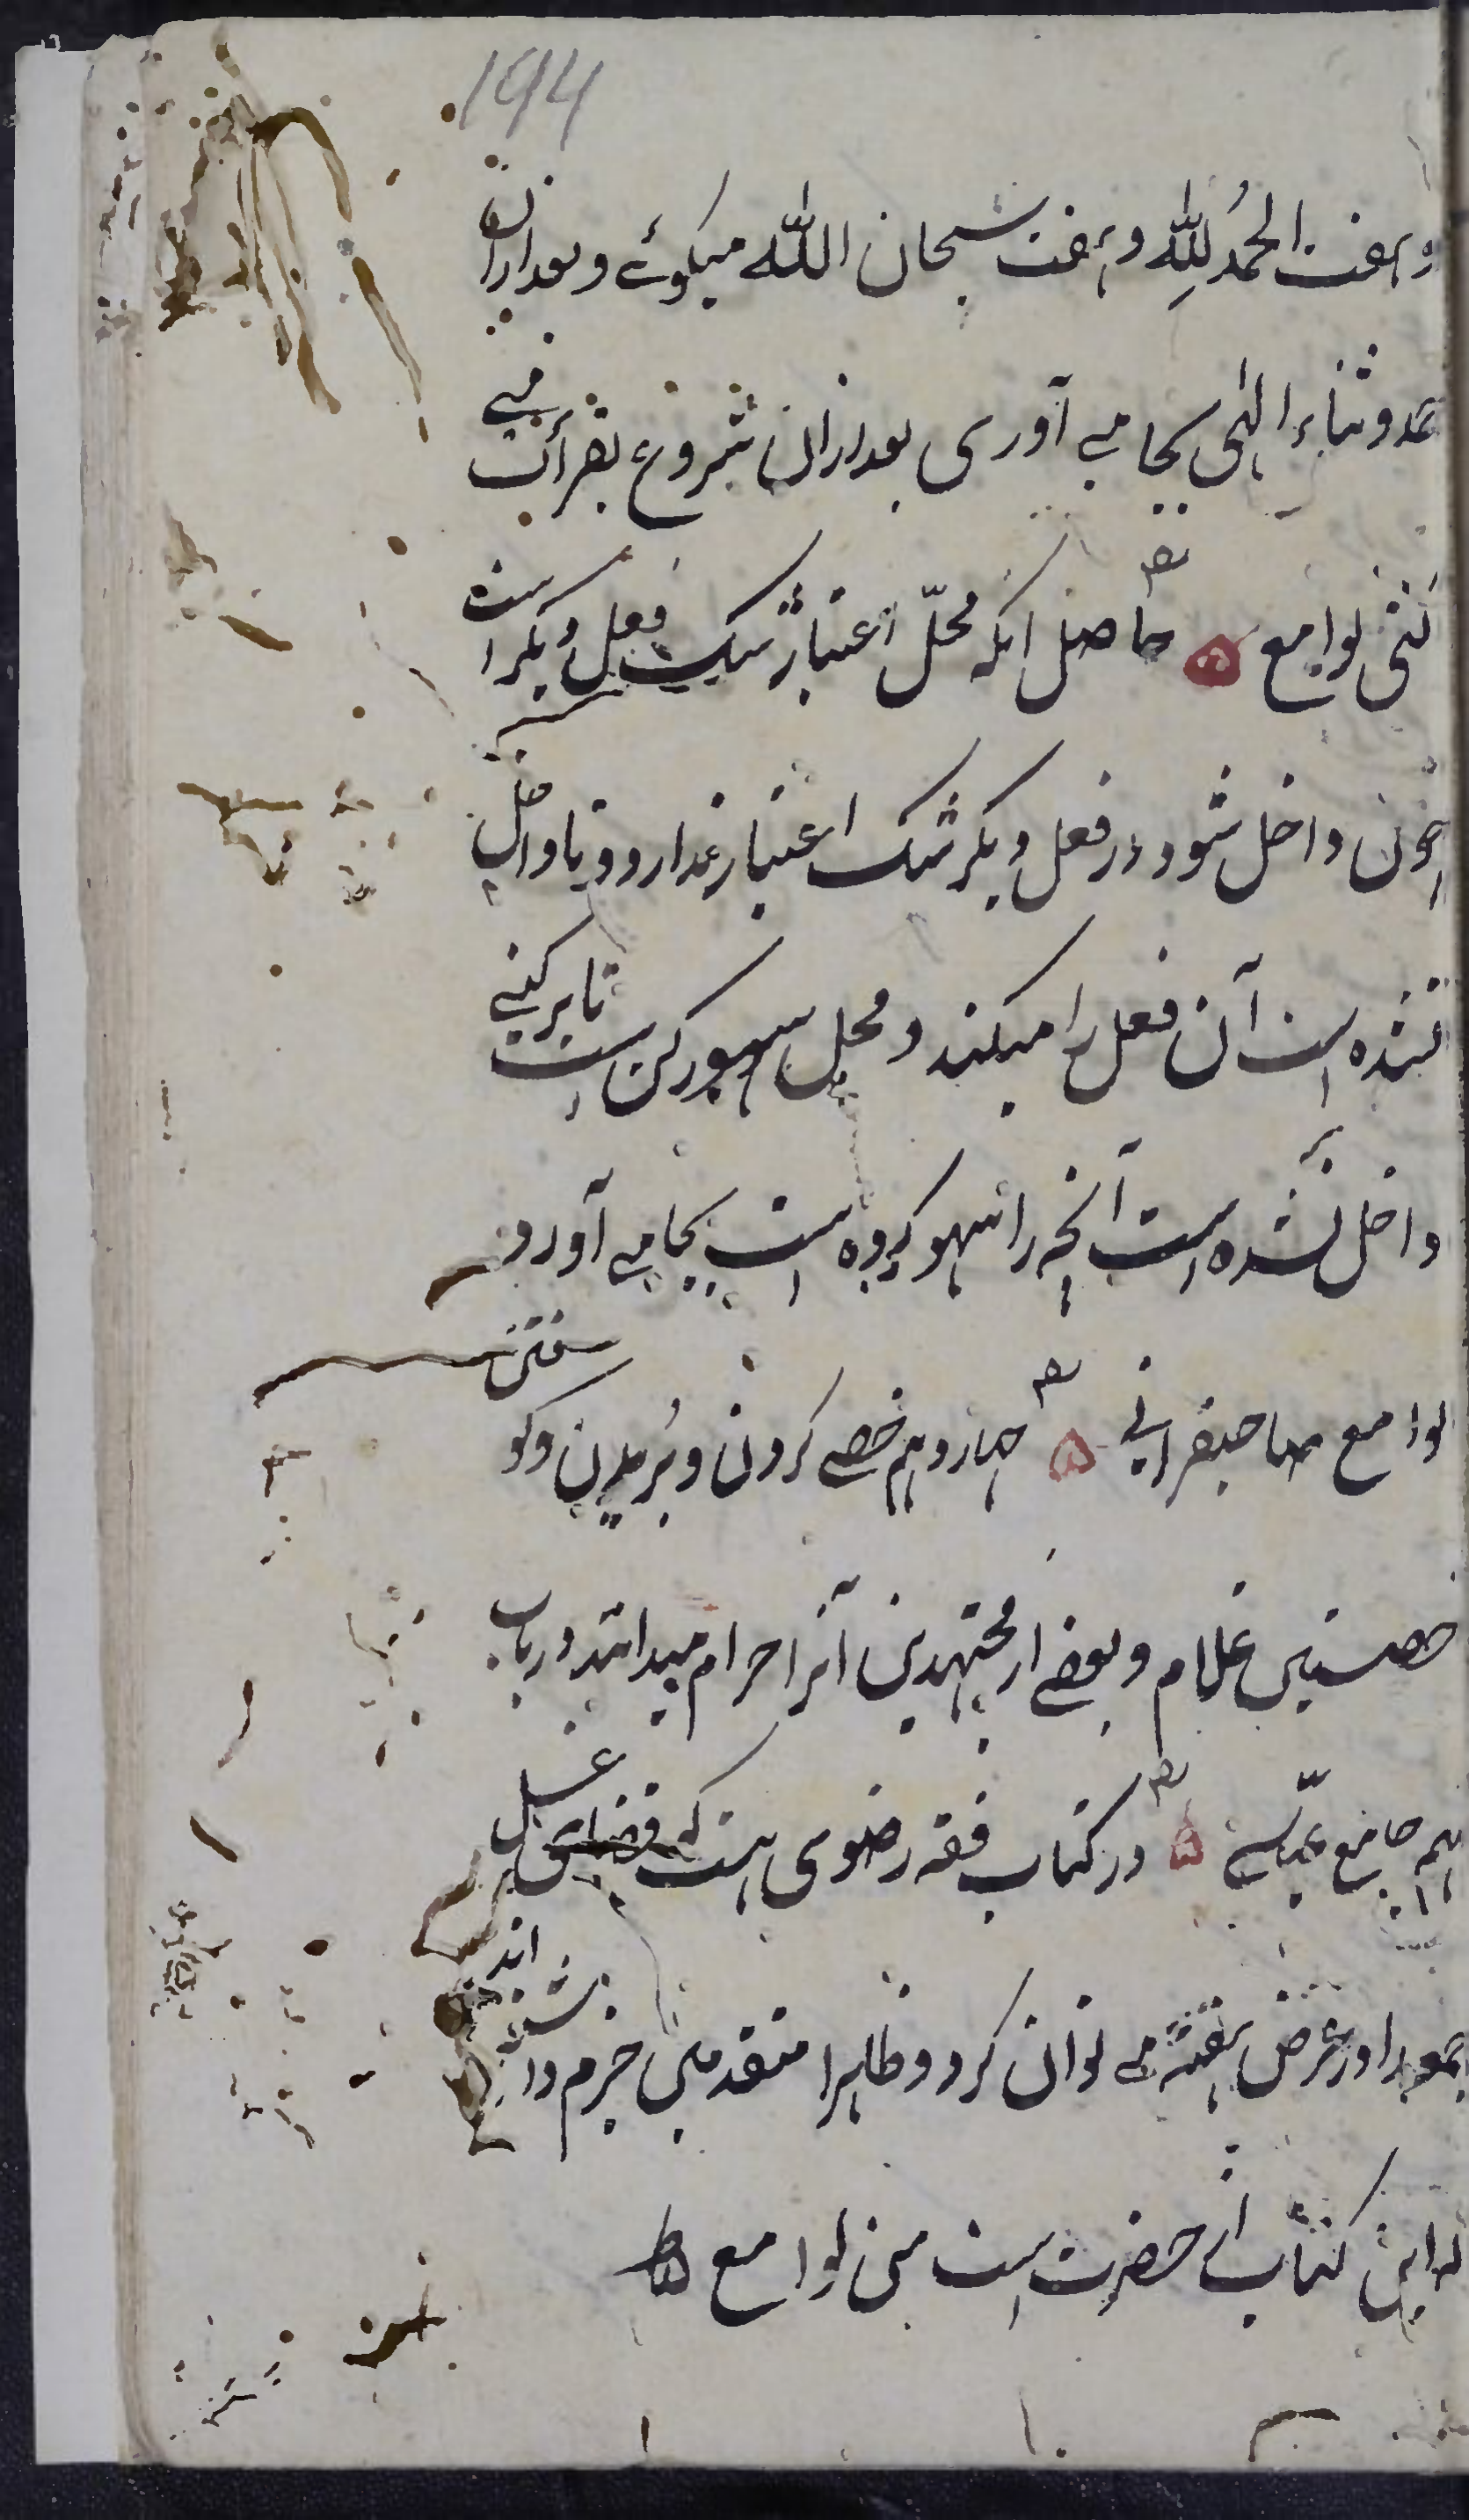 194
و هفت الحمد لله و هفت سبحان الله میکوئی و بعد ازان
حمد و ثناء الهی بجا می آوری بعد ازان شروع بقرأت می
کنی لوامع ۵ حاصل انکه محلّ اعتبار شک فعل دیکر است
چون داخل شود در فعل دیکر شک اعتبار ندارد و تا داخل
نشده است آن فعل را میکند و محل سهو رکن است تا برکنی
داخل نشده است آنچه را سهو کرده است بجا می آورد
لوامع صاحبقرانی ۵ چهاردهم خصی کردن و بریدن و کوفتن
خصیتین غلام و بعضی از مجتهدین آنرا حرام میدانند در باب
نهم جامع عباسی ۵ در کتاب فقه رضوی هست که قضای غسل
جمعه را در عرض هفته می توان کرد و ظاهرا متقدمین جزم داشته اند
که این کتاب از حضرت است من لوامع ۵